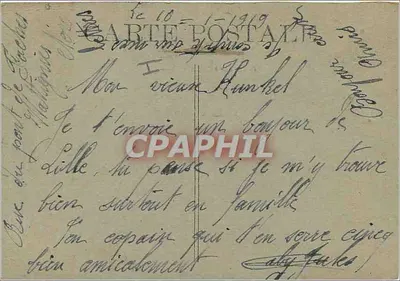 Le 10 - 1 - 1919
CARTE POSTALE
I
Mon vieux Kunkel
Je t'envoie un bonjour de
Lille, tu pense si je m'y trouve
bien surtout en famille
Ton copain qui t'en serre cinq
bien amicalement
Jules
Bonjour
amis
Rue du pont de
CPAPHIL